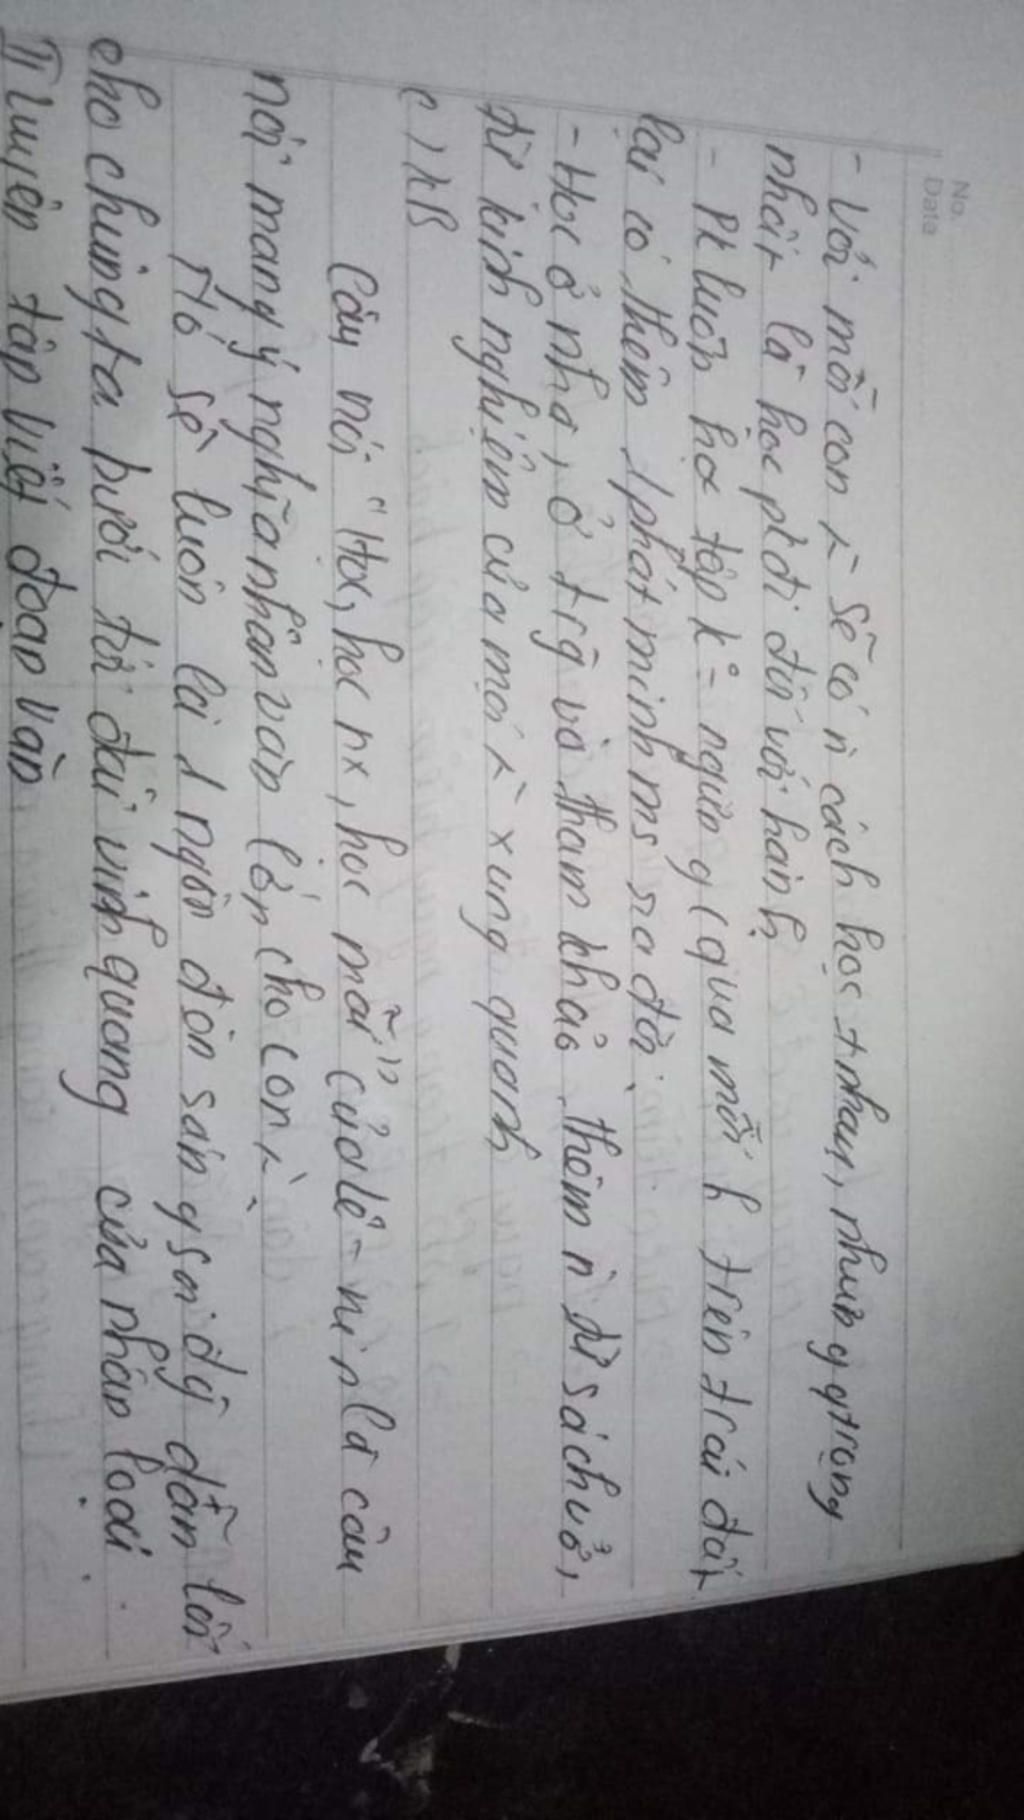 No.
Date
- Với mỗi con ὶ sẽ có n̄ cách học # nhau, nhưng qtrọng
nhất là học pk đi đối với hành
- Pk luôn học tập k° = ngừng (qua mỗi h trên trái đất
lại có thêm 1 phát minh ms ra đời
- Học ở nhà, ở trg̃ và tham khảo thêm n̄ từ sách vở,
từ kinh nghiệm của mọi ὶ xung quanh
c) KB
Câu nói "Học, học nx, học mãi" của Lê-nin là câu
nói mang ý nghĩa nhân văn lớn cho con ὶ
Nó sẽ luôn là 1 ngọn đèn sáng soi đg̃ dẫn lối
cho chúng ta bước tới đài vinh quang của nhân loại.
II Luyện tập viết đoạn văn